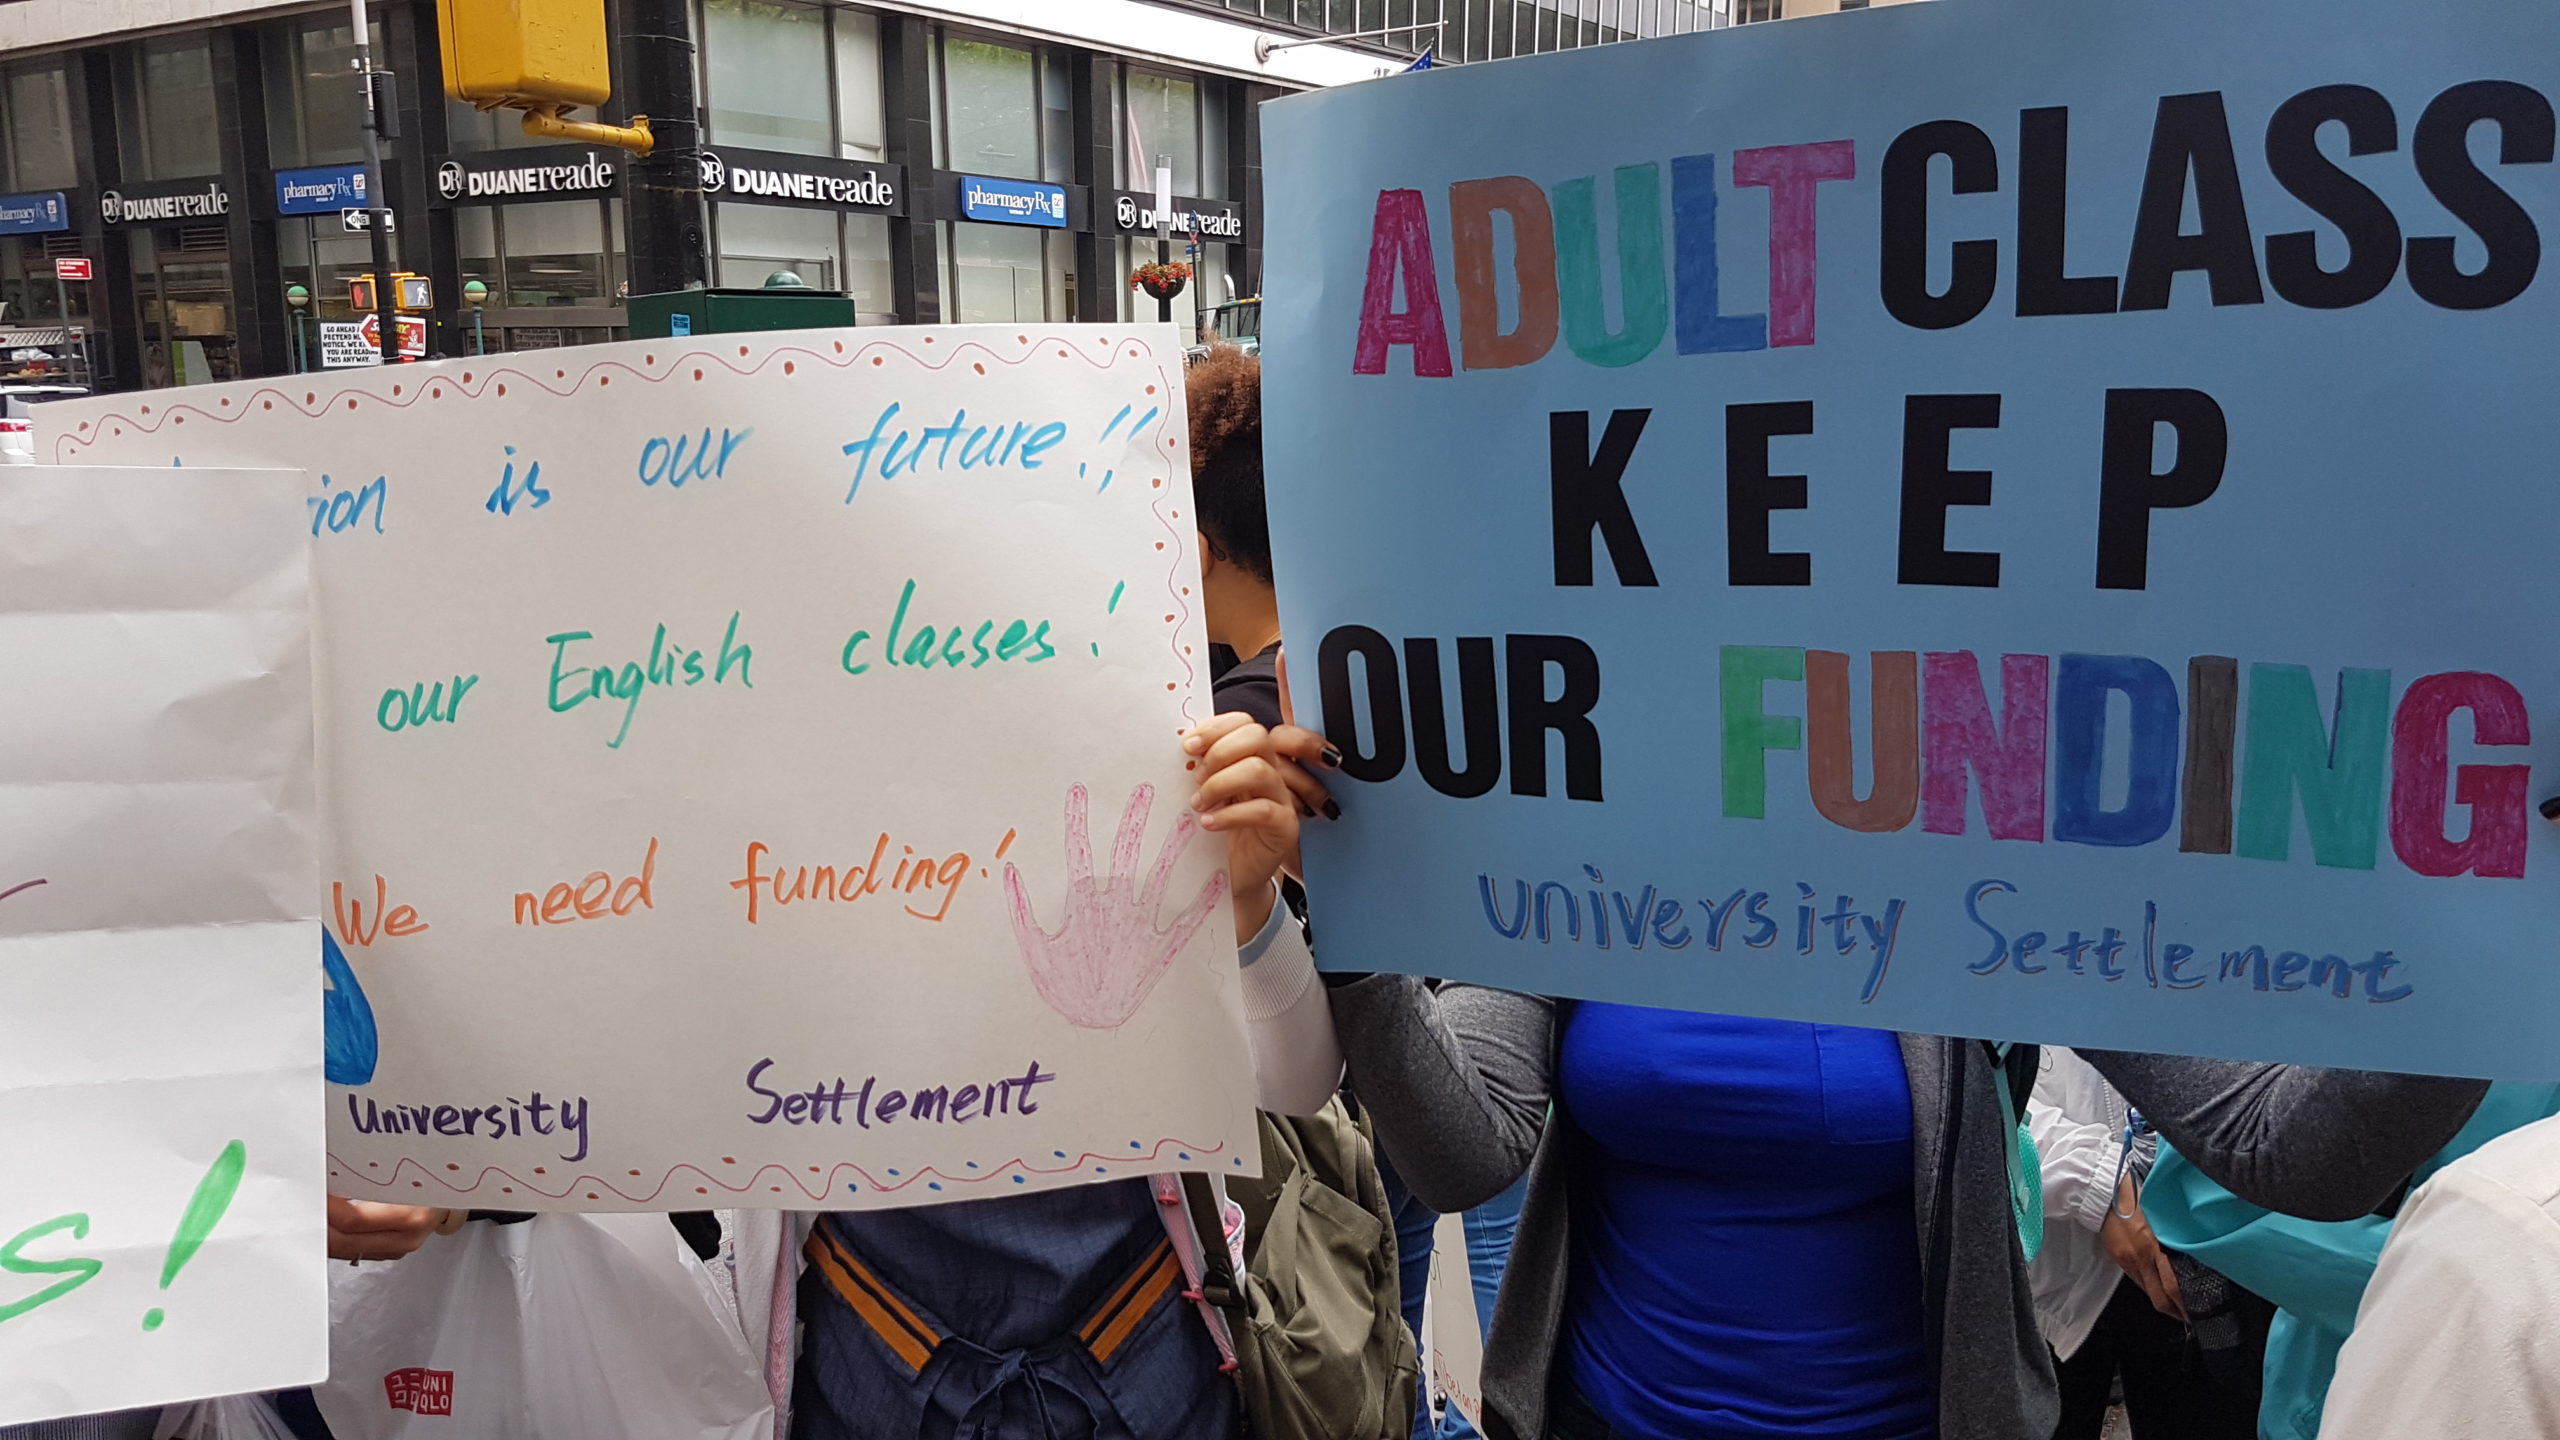 pharmacy Rx
DR DUANEreade
pharmacy Rx
DR DUANEreade
DR DUANEreade
pharmacy Rx
DR DUANEreade
ONE
GO AHEAD
PRETEND
NOTICE, WE
YOU ARE READING
THIS ANYWAY.
is our future!!
our English classes!
We need funding!
University Settlement
s!
ADULT CLASS
KEEP
OUR FUNDING
University Settlement
UNI
QLO